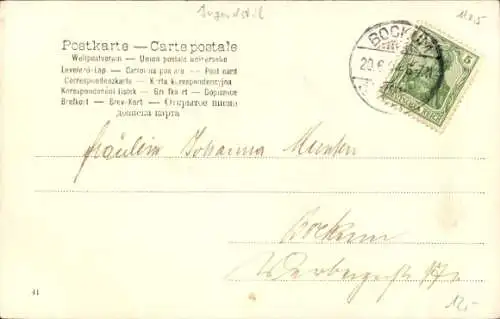 Jugendstil
1125
Postkarte — Carte postale
Weltpostverein — Union postale universelle
Levelező-Lap — Cartolina postale — Post card
Correspondenzkarte — Karta korrespondencyjna
Korespondenční lístek — Briefkaart — Dopisnice
Brefkort — Brev-Kort — Открытое письмо
дописна карта
BOCKUM
5
DEUTSCHES REICH
Fräulein Johanna
Bockum
41
12,-